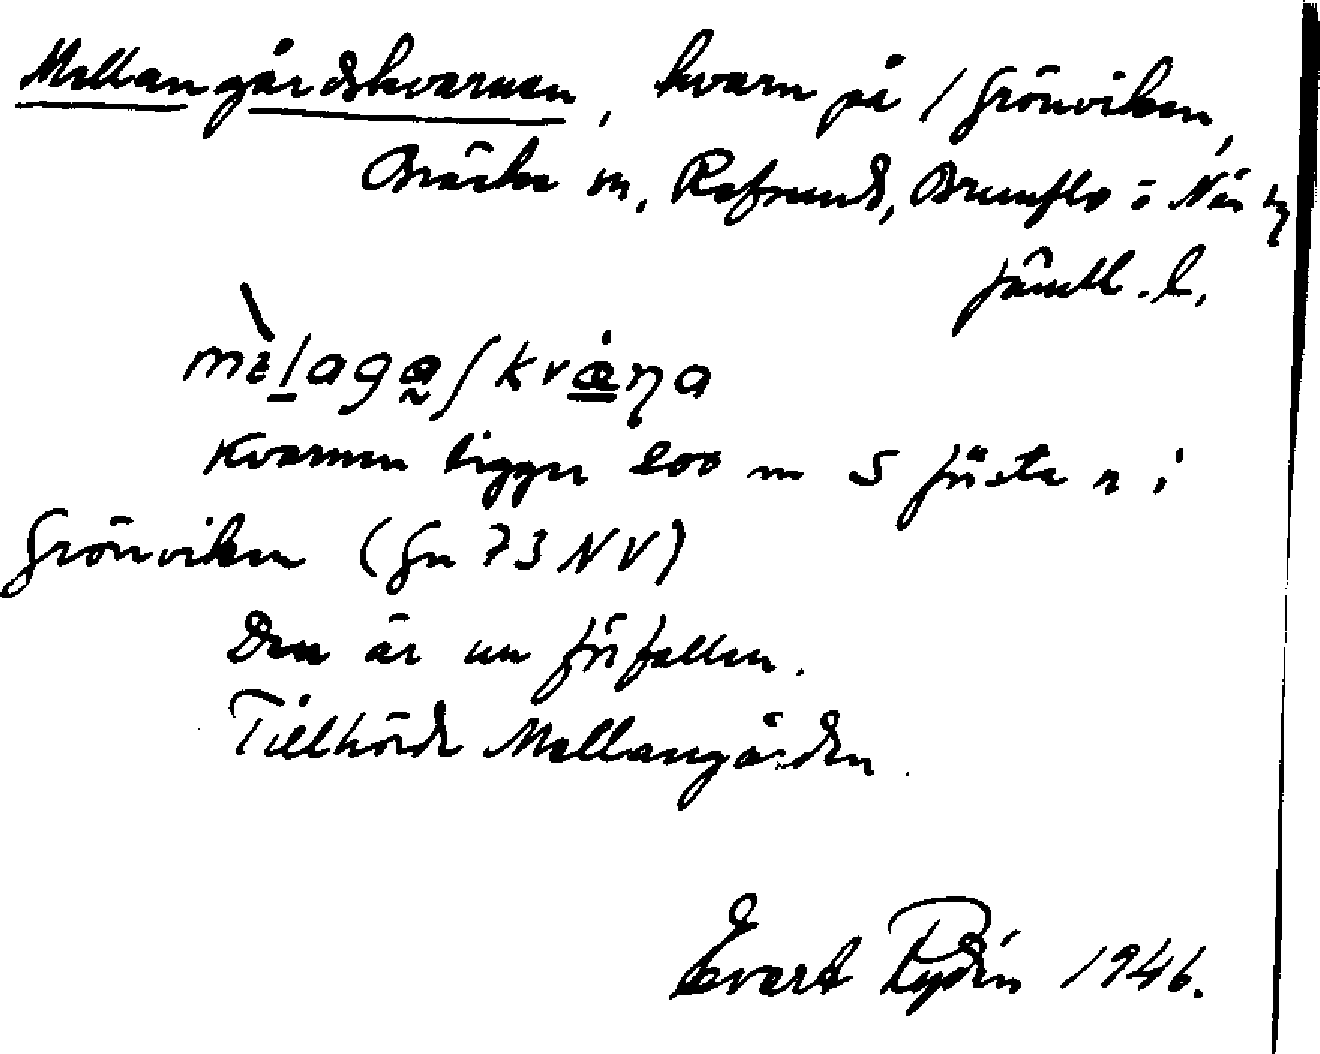 Mellangårdskvarnen, kvarn på /Grönviken,
Bräcke sn, Refsund, Brunflo o När tg
Jämtl. l.
mèlagaʃkvæ̀ɳa
Kvarnen ligger 200 m S jästa n i
Grönviken (Gn 73 NV)
Den är nu förfallen.
Tillhörde Mellangården.
Evert Rydin 1946.